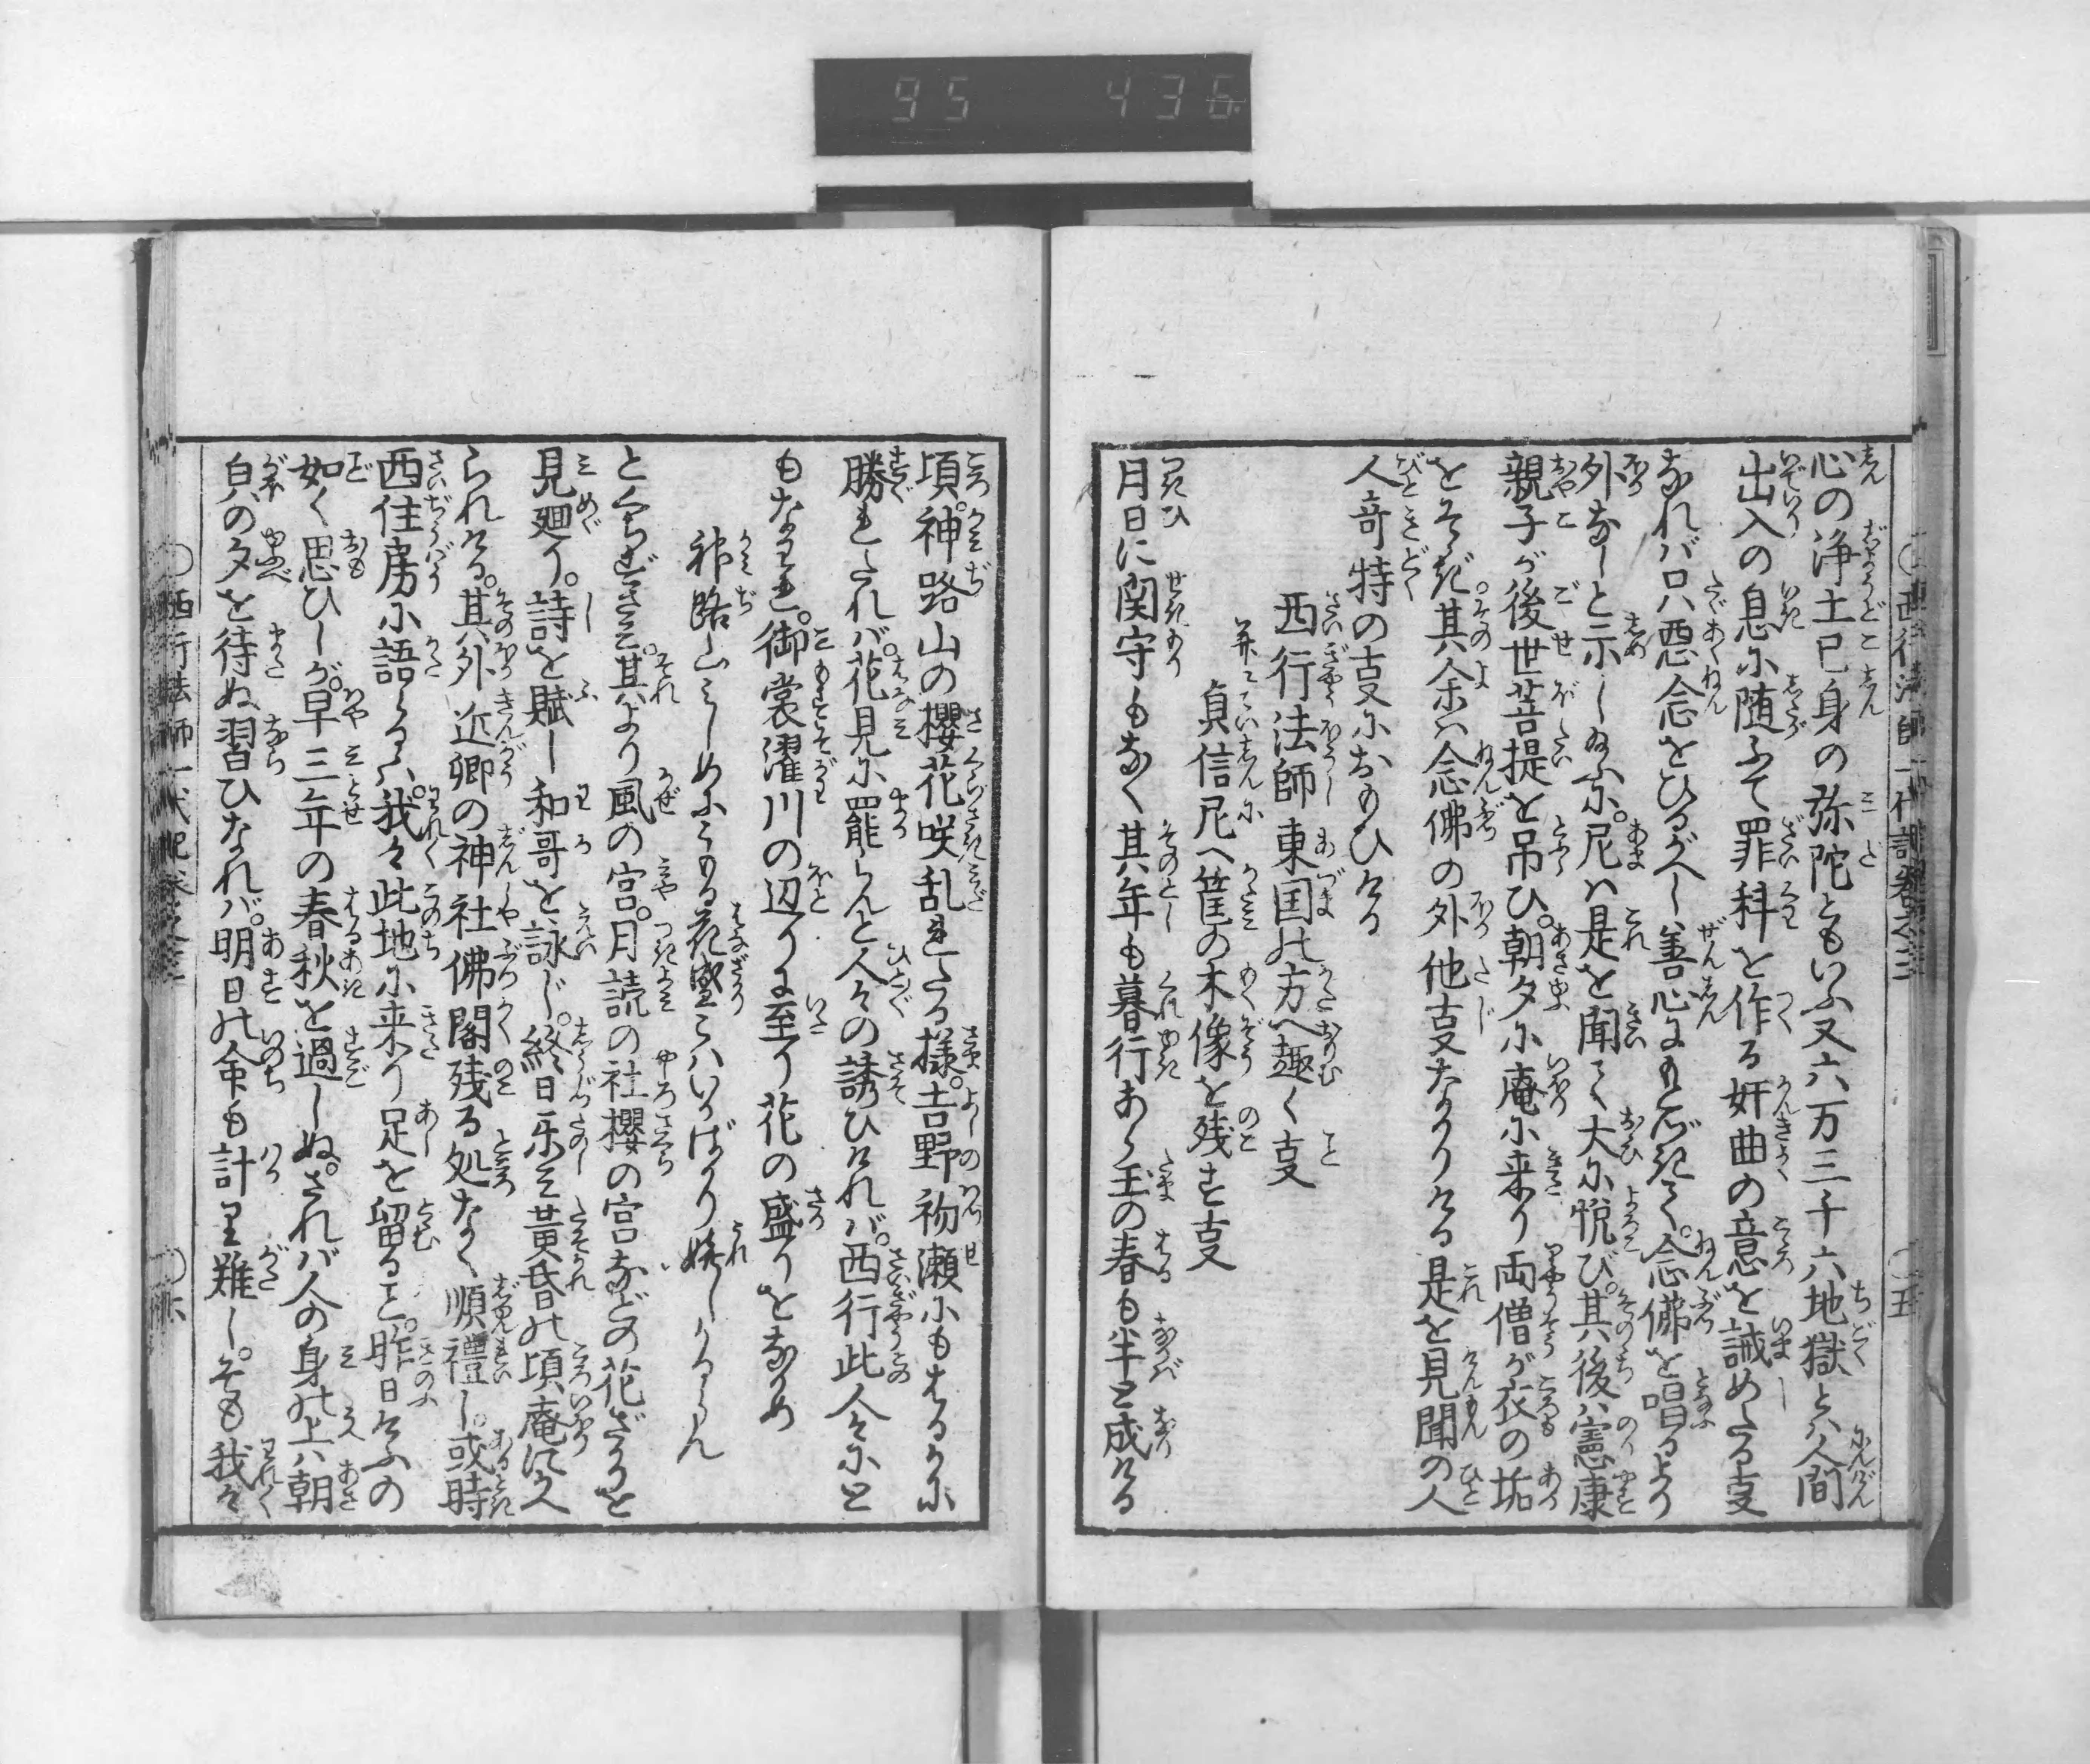 95 436
西行法師一代記巻之三 五
心の浄土已身の弥陀ともいふ又六万三千六地獄とハ人間
出入の息に随ふて罪科を作る奸曲の意を誡めたる亊
なれバ只悪念をひるがへし善心にもとづきて。念佛を唱るより
外なしと示し給ふ。尼ハ是を聞て大に悦び。其後ハ憲康
親子が後世菩提を吊ひ。朝夕に庵に来り両僧が衣の垢
をそゝぎ。其余ハ念佛の外他亊なかりける是を見聞の人
人奇特の亊におもひける
西行法師東国の方へ趣く亊
并ニ貞信尼へ筐の木像を残す亊
月日に関守もなく其年も暮行あら玉の春も半と成ける
頃。神路山の櫻花咲乱れたる様。吉野初瀬にもはるかに
勝れたれバ。花見に罷らんと人々の誘ひけれバ。西行此人々に
もなハれ。御裳濯川の辺りに至り花の盛りをながめ
神路山みしめにこもる花盛こハいかばかり嬉しかるらん
とくちずさミ。其より風の宮。月読の社櫻の宮などの花ざかりを
見廻り。詩を賦し和哥を詠じ。終日楽ミ黄昏の頃庵に入
られける。其外近郷の神社佛閣残る処なく順禮し。或時
西住房に語らるゝハ。我々此地に来り足を留ること。昨日けふの
如く思ひしが。早三年の春秋を過しぬ。されバ人の身の上ハ朝
皃の夕を待ぬ習ひなれバ。明日の命も計り難し。そも我々
西行法師一代記巻之三 六